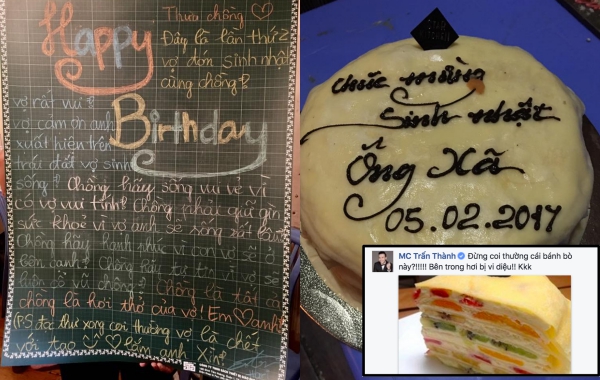 Happy
Birthday
Thưa chồng ♡
Đây là lần thứ 2
vợ đón sinh nhật
cùng chồng?
vợ rất vui?
vợ cảm ơn anh
xuất hiện trên
trái đất vợ sinh
sống? Chồng hãy sống vui vẻ vì
có vợ vui tính? Chồng phải giữ gìn
sức khoẻ vì vợ anh sẽ
Chồng hãy hạnh phúc vì vợ sẽ ở
bên cạnh? Chồng
Chồng là tất cả
chồng là hơi thở của vợ! Em ♡ anh
(P.S. tác thư xong coi thường vợ là chết
với tao lắm anh Xìn?
chúc mừng
Sinh nhật
Ông Xã
05.02.2017
MC Trấn Thành Đừng coi thường cái bánh bò
này?!!!!! Bên trong hơi bị vi diệu!! Kkk